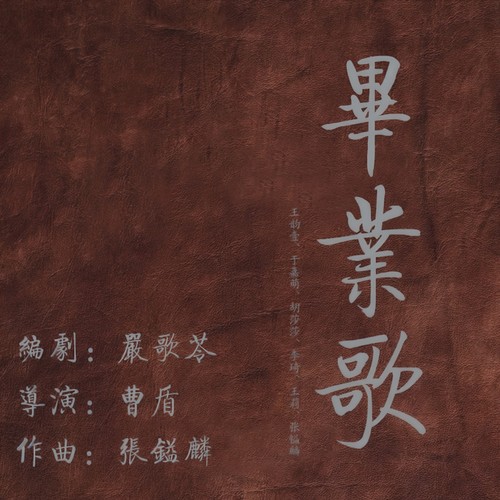 畢業歌
王韵壹、于嘉萌、胡莎莎、李琦、王莉、張鎰麟
編劇：嚴歌苓
導演：曹盾
作曲：張鎰麟